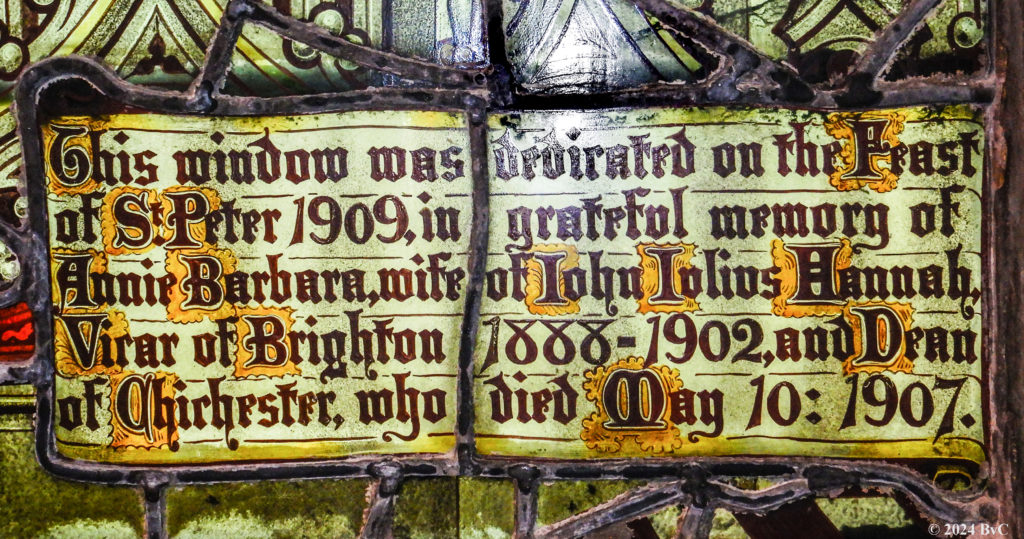 This window was dedicated on the Feast
of St. Peter 1909, in grateful memory of
Annie Barbara, wife of Iohn Iolius Hannah,
Vicar of Brighton 1888-1902, and Dean
of Chichester, who died May 10: 1907.
© 2024 BvC